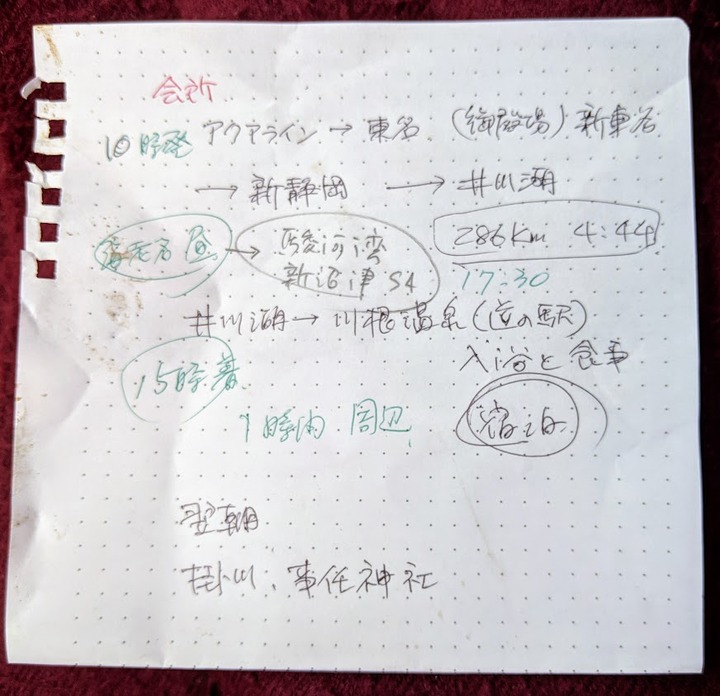 会所
10時発 アクアライン → 東名 (御殿場) 新東名
→ 新静岡 → 井川湖
海老名 昼 → 駿河湾 286km 4:44
新沼津 SA 17:30
井川湖 → 川根温泉 (道の駅)
入浴と食事
15時着 宿泊
1時間 周辺
翌朝
掛川、事任神社